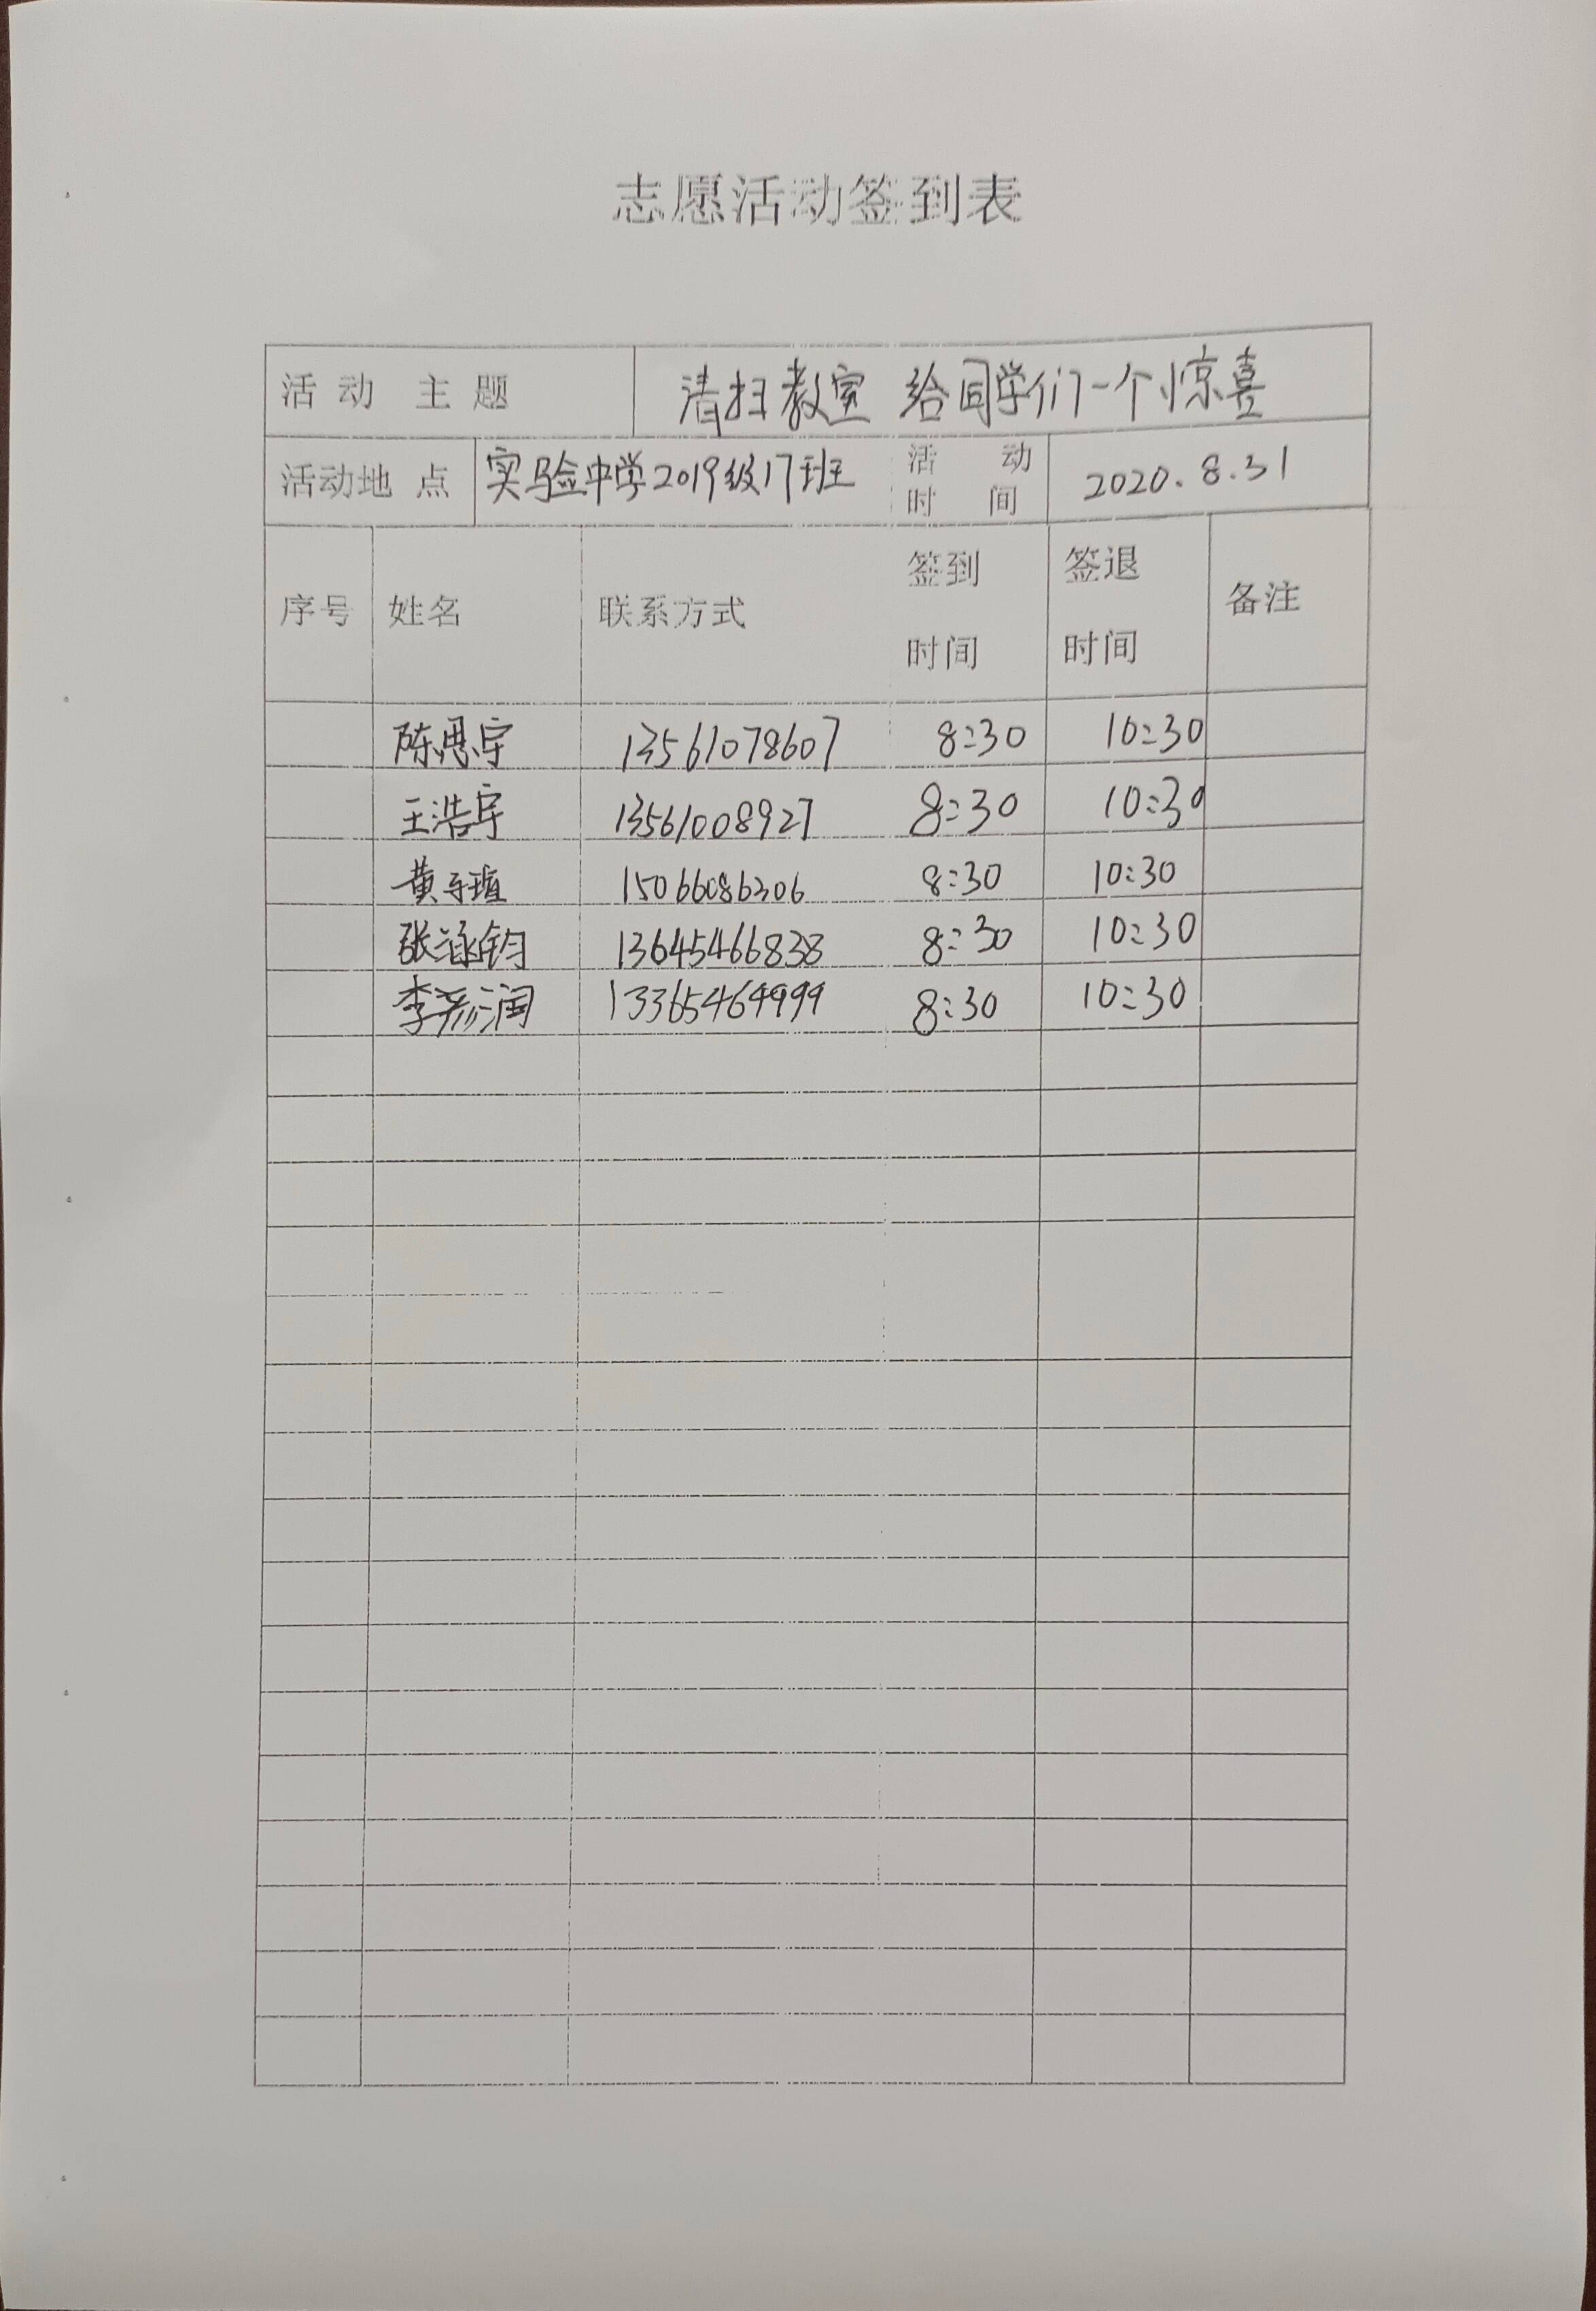 志愿活动签到表
活动 主题 清扫教室 给同学们一个惊喜
活动地 点 实验中学2019级17班 活动时间 2020.8.31
序号 姓名 联系方式 签到时间 签退时间 备注
陈思宇 13561078607 8:30 10:30
王浩宇 13561008927 8:30 10:30
黄子瑄 15066086306 8:30 10:30
张涵钧 13645466838 8:30 10:30
李彦润 13365464999 8:30 10:30